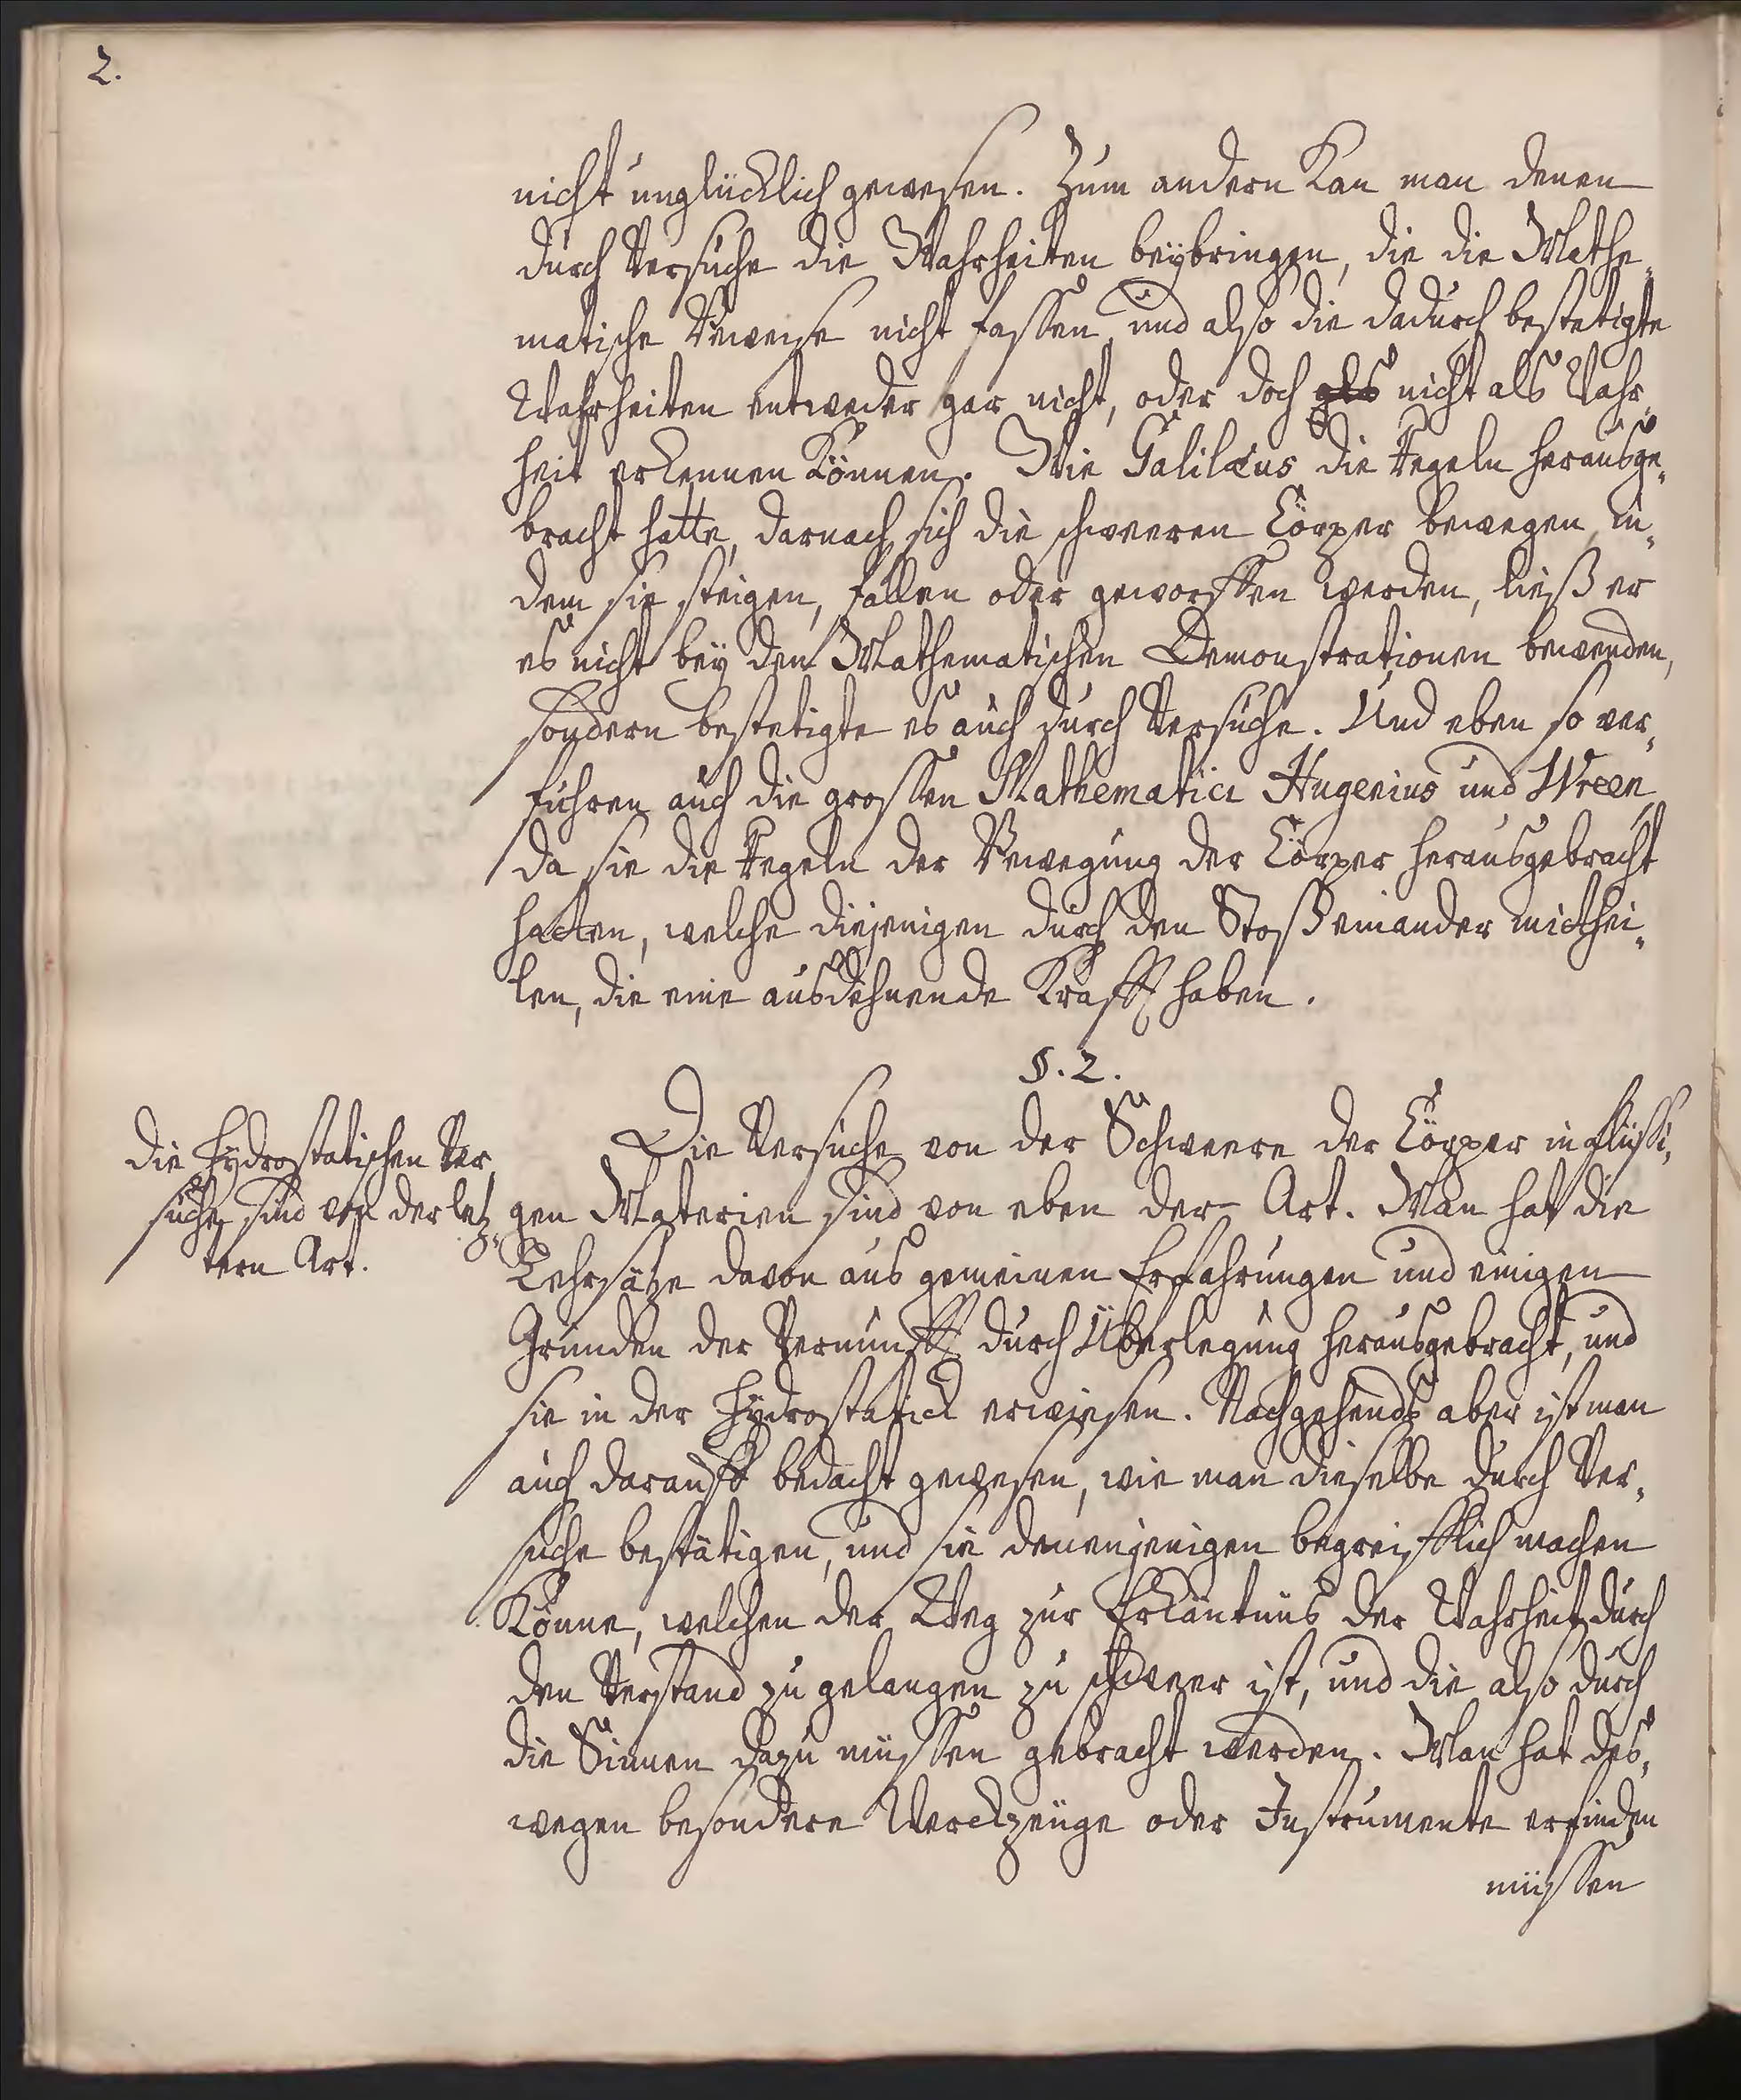 2.
nicht unglücklich gewesen. Zum andern Kan man denen
durch Versuche die Wahrheiten beybringen, die die Mathe„
matische Beweise nicht fassen, und also die dadurch bestetigte
Wahrheiten entweder gar nicht, oder doch als nicht als Wahr„
heit erkennen Können. Wie Galilæus die Regeln herausge„
bracht hatte, darnach sich die schweren Cörper bewegen, in„
dem sie steigen, fallen oder geworffen werden, ließ er
es nicht bey den Mathematischen Demonstrationen bewenden,
sondern bestetigte es auch durch Versuche. Und eben so ver„
fuhren auch die grossen Mathematici Hugenius und Wreen,
da sie die Regeln der Bewegung der Cörper herausgebracht
hatten, welche diejenigen durch den Stoß einander mitthei„
len, die eine ausdehnende Krafft haben.
§. 2.
Die Hydrostatischen Ver„
suche sind von der letz„
tern Art.
Die Versuche von der Schweere der Cörper in flüssi„
gen Materien sind von eben der Art. Man hat die
Lehrsäze davon aus gemeinen Erfahrungen und einigen
Gründen der Vernunfft durch Überlegung herausgebracht, und
sie in der Hydrostatick erwiesen. Nachgehends aber ist man
auch darauff bedacht gewesen, wie man dieselbe durch Ver„
suche bestätigen, und sie denenjenigen begreifflich machen
Könne, welchen der Weg zur Erkäntnüs der Wahrheit durch
den Verstand zu gelangen zu schweer ist, und die also durch
die Sinnen dazu müssen gebracht werden. Man hat des„
wegen besondere Werckzeüge oder Instrumente erfinden
müssen